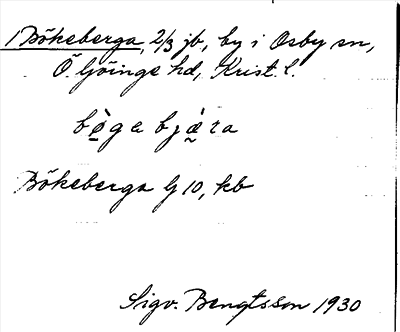 1 Bökeberga, 2/3 jb, by i Osby sn,
Ö. Göinge hd, Krist. l.
bø̀ga bjæ̀ra
Bökeberga G 10, kb
Sigv. Bengtsson 1930